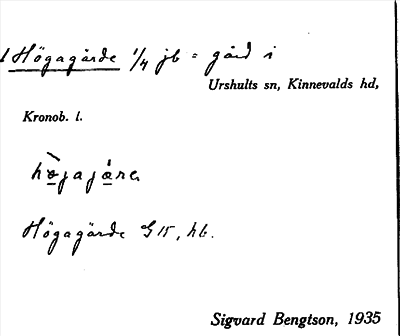 Högagärde 1/4 jb = gård i
Urshults sn, Kinnevalds hd,
Kronob. l.
Högagärde G 15, hb.
Sigvard Bengtson, 1935